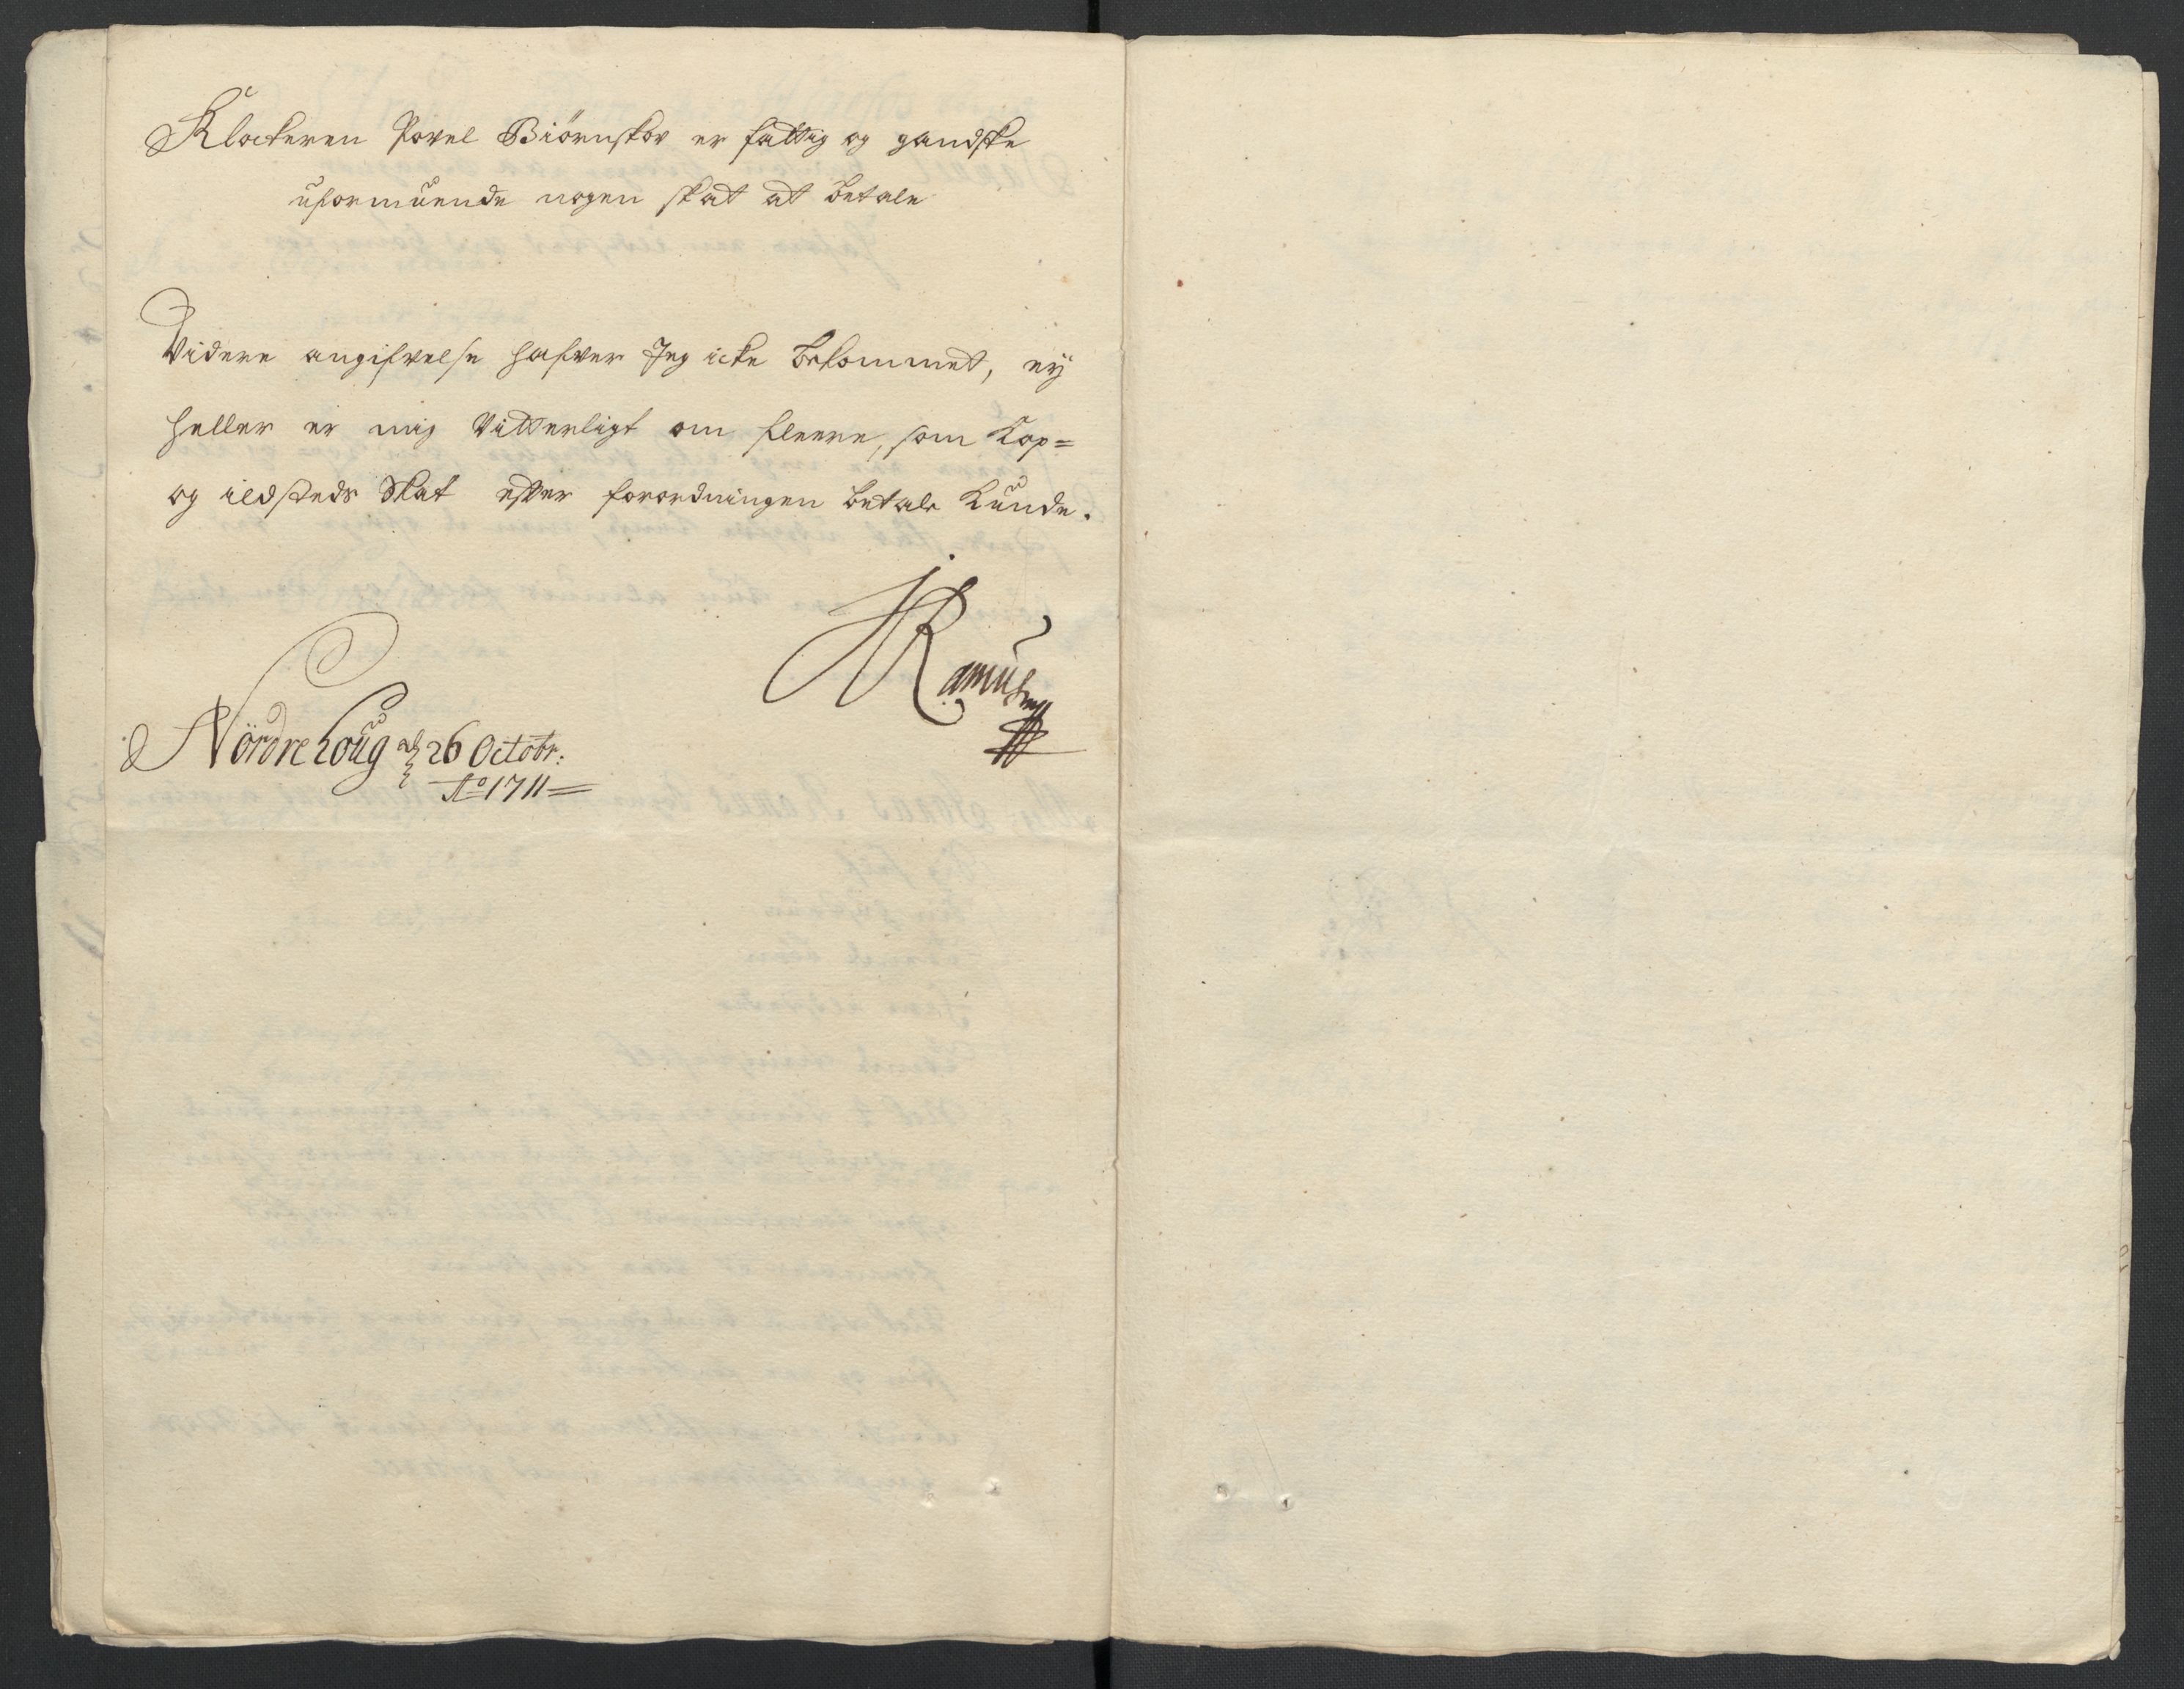 Klockeren Povel Biörnskov er fattig og gandske
uformuende nogen skat at betale
Videre angifvelse hafver Jeg icke bekommet, eÿ
heller er mig Vitterligt om fleere, som Kop=
og ildsteds Skat efter forordningen betale Kunde.
JRamus
Nördrehoug d 26 Octobr:
Ao 1711